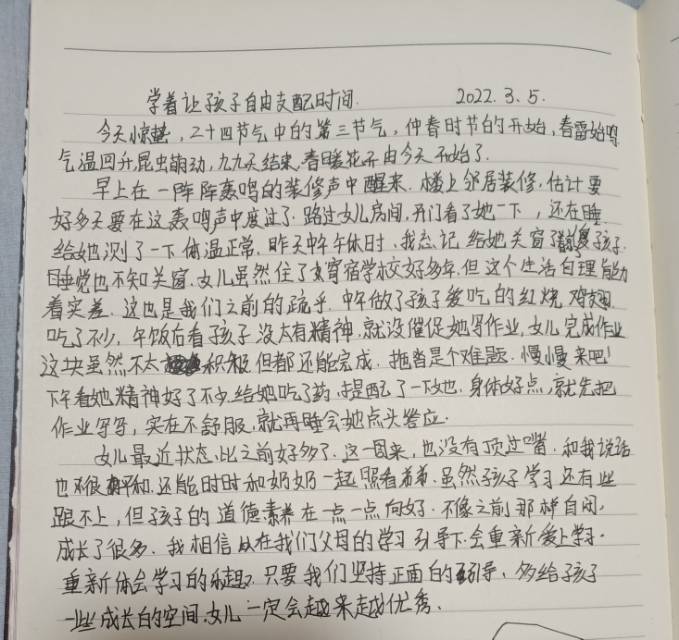 学着让孩子自由支配时间. 2022.3.5.
今天惊蛰，二十四节气中的第三节气，仲春时节的开始，春雷始鸣
气温回升，昆虫萌动，九九天结束，春暖花开由今天开始了.
早上在一阵阵轰鸣的装修声中醒来，楼上邻居装修，估计要
好多天要在这轰鸣声中度过了.路过女儿房间，开门看了她一下，还在睡.
给她测了一下体温正常.昨天中午午休时.我忘记给她关窗 孩子
睡觉也不知关窗.女儿虽然住了 寄宿学校好多年.但这个生活自理能力
着实差.这也是我们之前的疏乎.中午做了孩子爱吃的红烧鸡翅
吃了不少，午饭后看孩子没太有精神.就没催促她写作业，女儿完成作业
这块虽然不太 积极但都还能完成.拖沓是个难题.慢慢来吧!
下午看她精神好了不少.给她吃了药，提醒了一下她.身体好点，就先把
作业写写，实在不舒服.就再睡会她点头答应.
女儿最近状态.比之前好多了.这一周来，也没有顶过嘴.和我说话
也很 平和.还能时时和奶奶一起照看弟弟.虽然孩子学习还有些
跟不上，但孩子的道德素养在一点一点向好.不像之前那样自闭，
成长了很多.我相信 在我们父母的学习引导下.会重新爱上学习.
重新体会学习的乐趣.只要我们坚持正面的引导，多给孩子
一些成长的空间.女儿一定会越来越优秀.